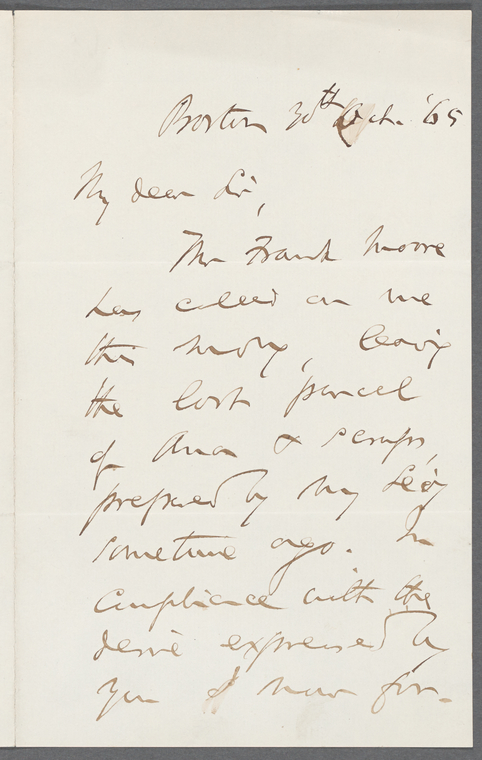 Boston 30th Oct. '65
My dear Sir,
Mr Frank Moore
has called on me
this mor'g, leaving
the lost parcel
of & scraps,
prepared by my Sec'y
sometime ago. In
compliance with the
desire expressed by
you I now for-